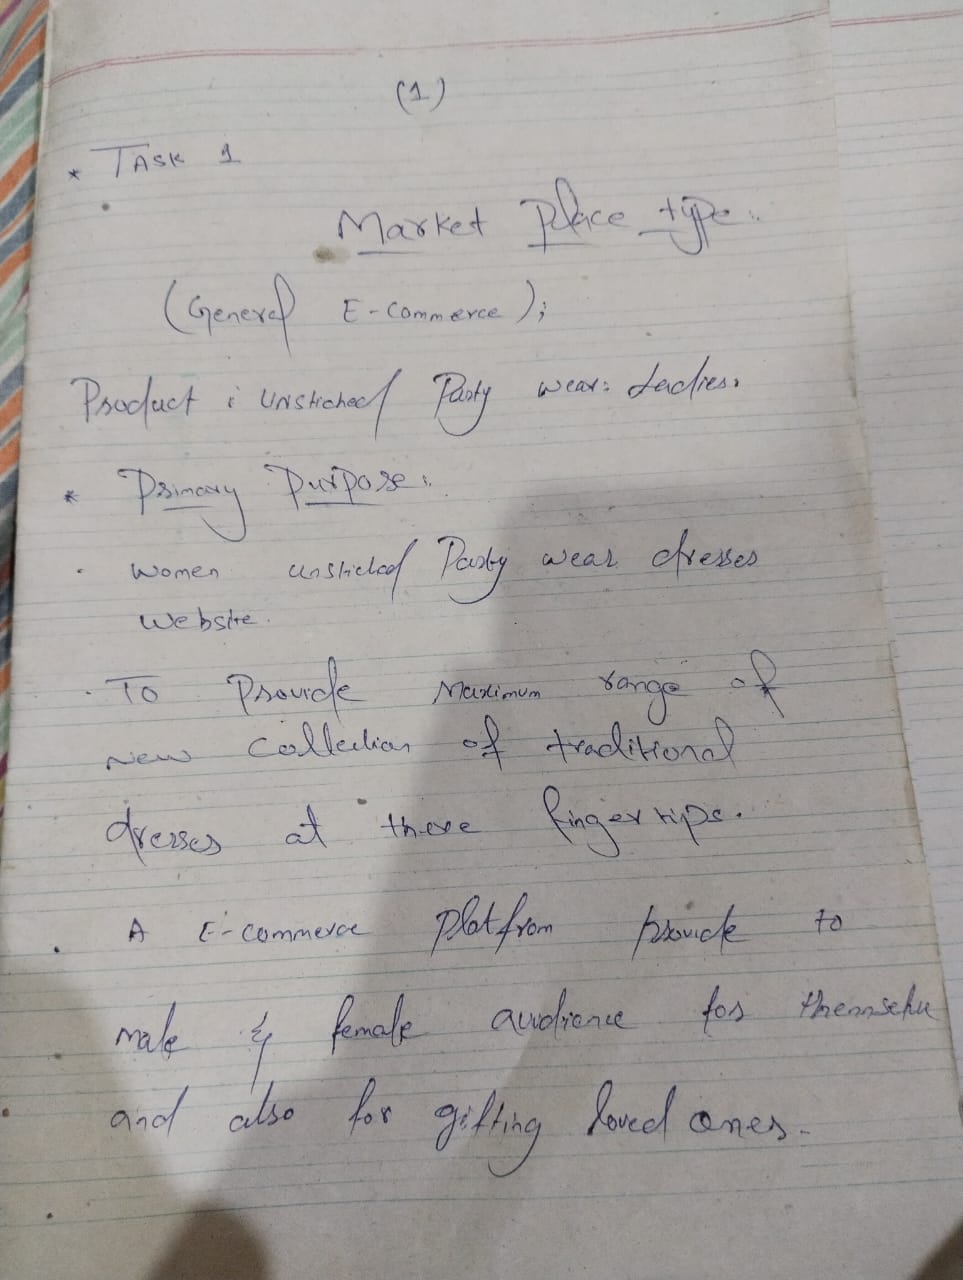 (1)
* TASK 1
Market Place type:
(General E-commerce);
Product : Unstiched Party wear: Ladies.
* Primary Purpose:
. Women unstiched Party wear dresses
website.
. To Provide Maximum range of
New Collection of traditional
dresses at there finger tips.
. A E-commerce Platfrom provide to
male & female audience for themselve
and also for gifting loved ones.